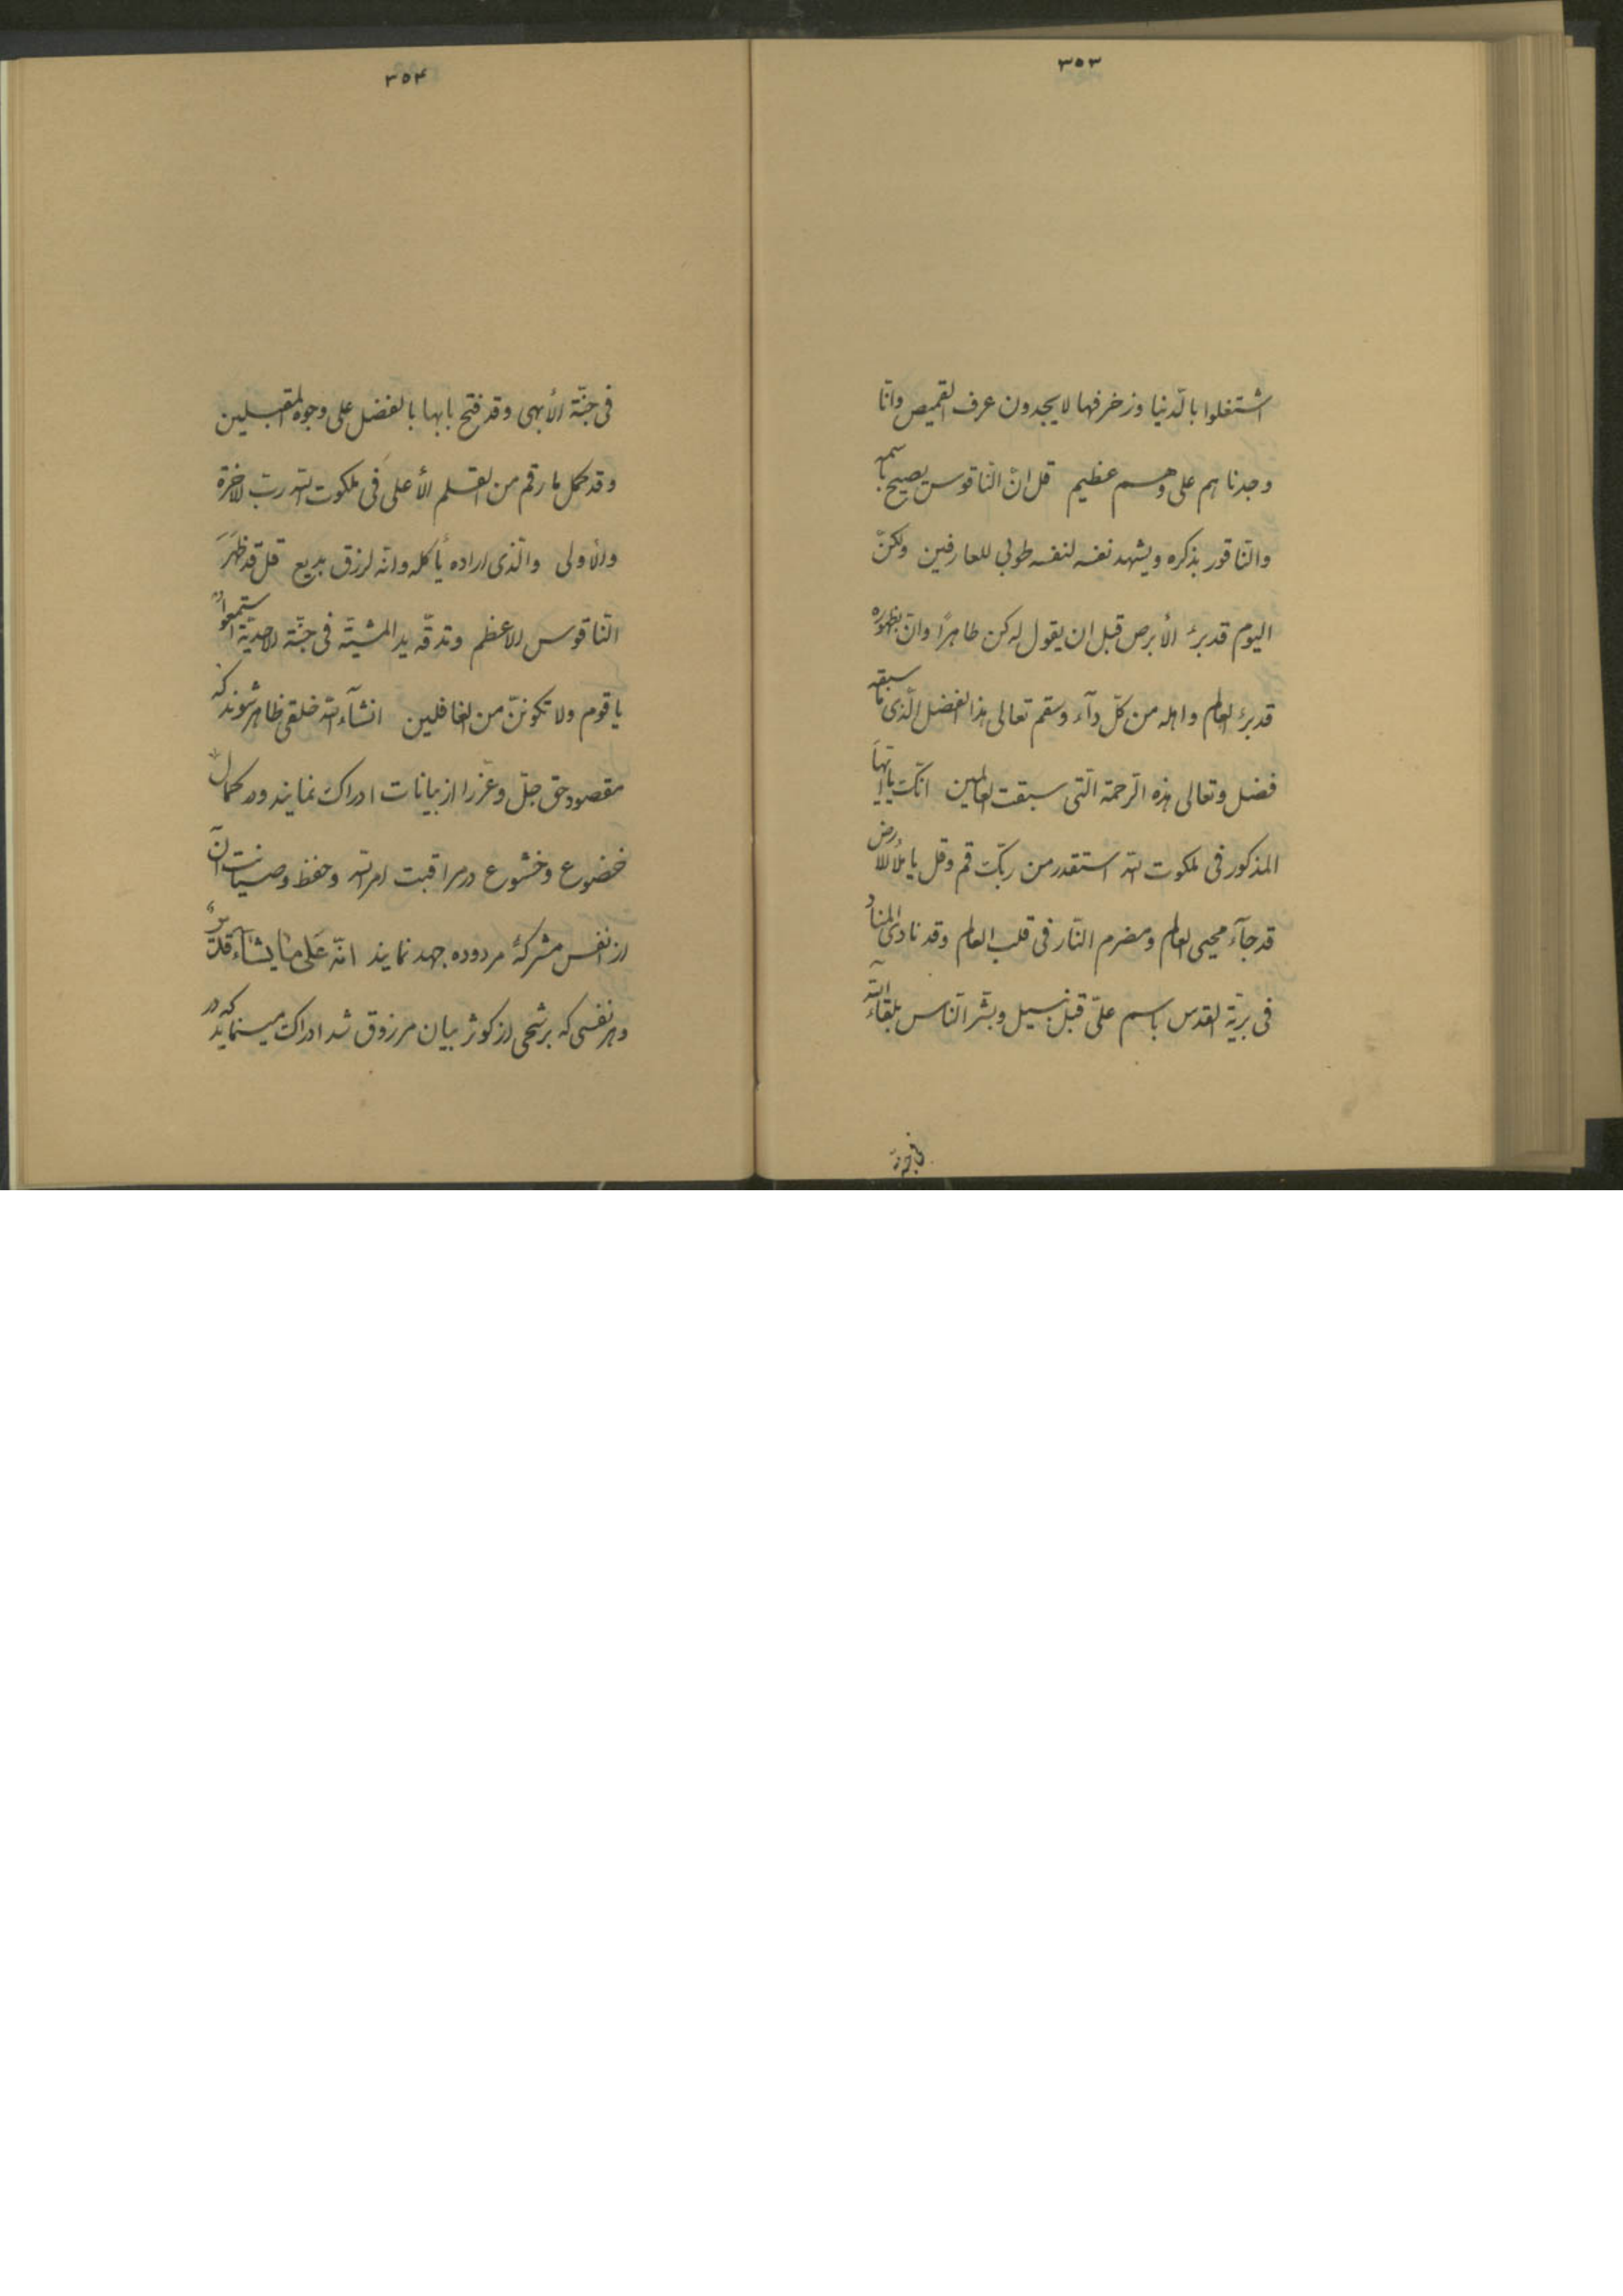 ٣٥٣
اشتغلوا بالدّنیا وزخرفها لایجدون عرف القمیص وانّا
وجدناهم علی وهم عظیم قل انّ النّاقوس یصیح باسمه
والنّاقور بذکره ویشهد نفسه لنفسه طوبی للعارفین ولکنّ
الیوم قد برء الأبرص قبل ان یقول له کن طاهرًا وانّ بظهوره
قد برء العالم واهله من کلّ دآء وسقم تعالی هذا الفضل الّذی ما سبقه
فضل وتعالی هذه الرّحمة الّتی سبقت العالمین انّک یا ایّها
المذکور فی ملکوت الله استقدر من ربّک قم وقل یا ملأ الارض
قد جآء محیی العالم ومضرم النّار فی قلب العالم وقد نادی المناد
فی برّیّة القدس باسم علیّ قبل نبیل وبشّر النّاس بلقآء الله
فی جنّة
٣٥۴
فی جنّة الأبهی وقد فتح بابها بالفضل علی وجوه المقبلین
وقد کمل ما رقم من القلم الأعلی فی ملکوت الله ربّ الاخرة
والأولی والّذی اراده یأکله وانّه لرزق بدیع قل قد ظهر
النّاقوس الاعظم وتدقّه ید المشیّة فی جنّة الاحدیّة استمعوا
یا قوم ولا تکوننّ من الغافلین انشآء الله خلقی ظاهر شوند که
مقصود حق جلّ وعزّ را از بیانات ادراک نمایند ودر کمال
خضوع وخشوع در مراقبت امر الله وحفظ وصیانت آن
از انفس مشرکهٔ مردوده جهد نمایند انّه علی ما یشآء قدیر
وهر نفسی که برشحی از کوثر بیان مرزوق شد ادراک مینماید که در